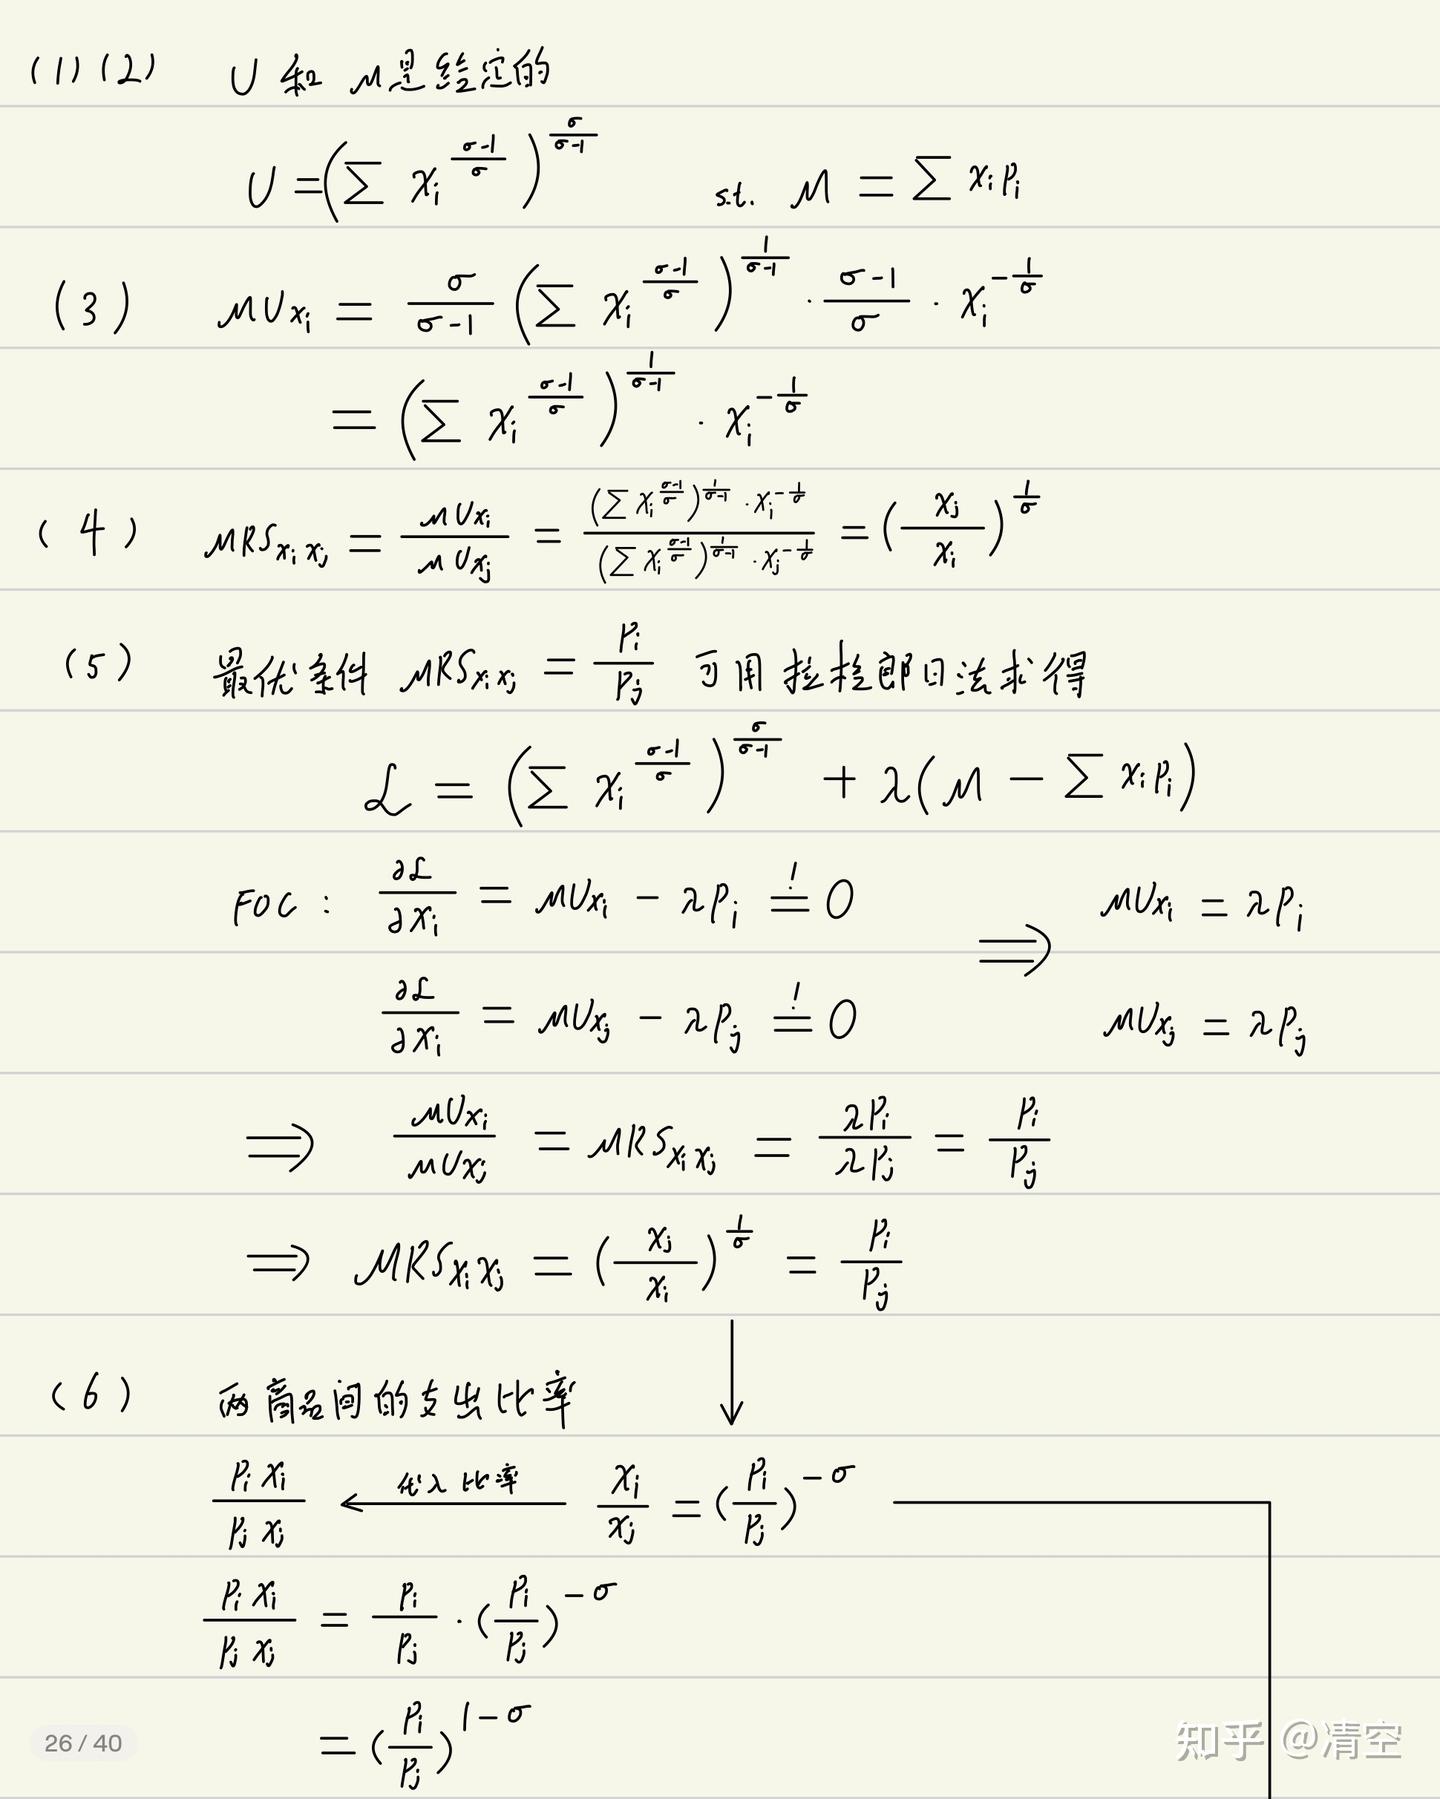 (1)(2) U 和 M是给定的
U = (∑ x_i^{\frac{σ-1}{σ}})^{\frac{σ}{σ-1}} s.t. M = ∑ x_i p_i
(3) MU_{x_i} = \frac{σ}{σ-1} (∑ x_i^{\frac{σ-1}{σ}})^{\frac{1}{σ-1}} · \frac{σ-1}{σ} · x_i^{-\frac{1}{σ}}
= (∑ x_i^{\frac{σ-1}{σ}})^{\frac{1}{σ-1}} · x_i^{-\frac{1}{σ}}
(4) MRS_{x_i x_j} = \frac{MU_{x_i}}{MU_{x_j}} = \frac{(∑ x_i^{\frac{σ-1}{σ}})^{\frac{1}{σ-1}} · x_i^{-\frac{1}{σ}}}{(∑ x_i^{\frac{σ-1}{σ}})^{\frac{1}{σ-1}} · x_j^{-\frac{1}{σ}}} = (\frac{x_j}{x_i})^{\frac{1}{σ}}
(5) 最优条件 MRS_{x_i x_j} = \frac{P_i}{P_j} 可用拉格郎日法求得
ℒ = (∑ x_i^{\frac{σ-1}{σ}})^{\frac{σ}{σ-1}} + λ(M - ∑ x_i p_i)
FOC : \frac{∂ℒ}{∂x_i} = MU_{x_i} - λP_i \overset{!}{=} 0 ⟹ MU_{x_i} = λP_i
\frac{∂ℒ}{∂x_i} = MU_{x_j} - λP_j \overset{!}{=} 0 MU_{x_j} = λP_j
⟹ \frac{MU_{x_i}}{MU_{x_j}} = MRS_{x_i x_j} = \frac{λP_i}{λP_j} = \frac{P_i}{P_j}
⟹ MRS_{x_i x_j} = (\frac{x_j}{x_i})^{\frac{1}{σ}} = \frac{P_i}{P_j}
(6) 两商品间的支出比率 ↓
\frac{P_i x_i}{P_j x_j} ← 代入比率 \frac{x_i}{x_j} = (\frac{P_i}{P_j})^{-σ}
\frac{P_i x_i}{P_j x_j} = \frac{P_i}{P_j} · (\frac{P_i}{P_j})^{-σ}
= (\frac{P_i}{P_j})^{1-σ}
26 / 40
知乎 @清空